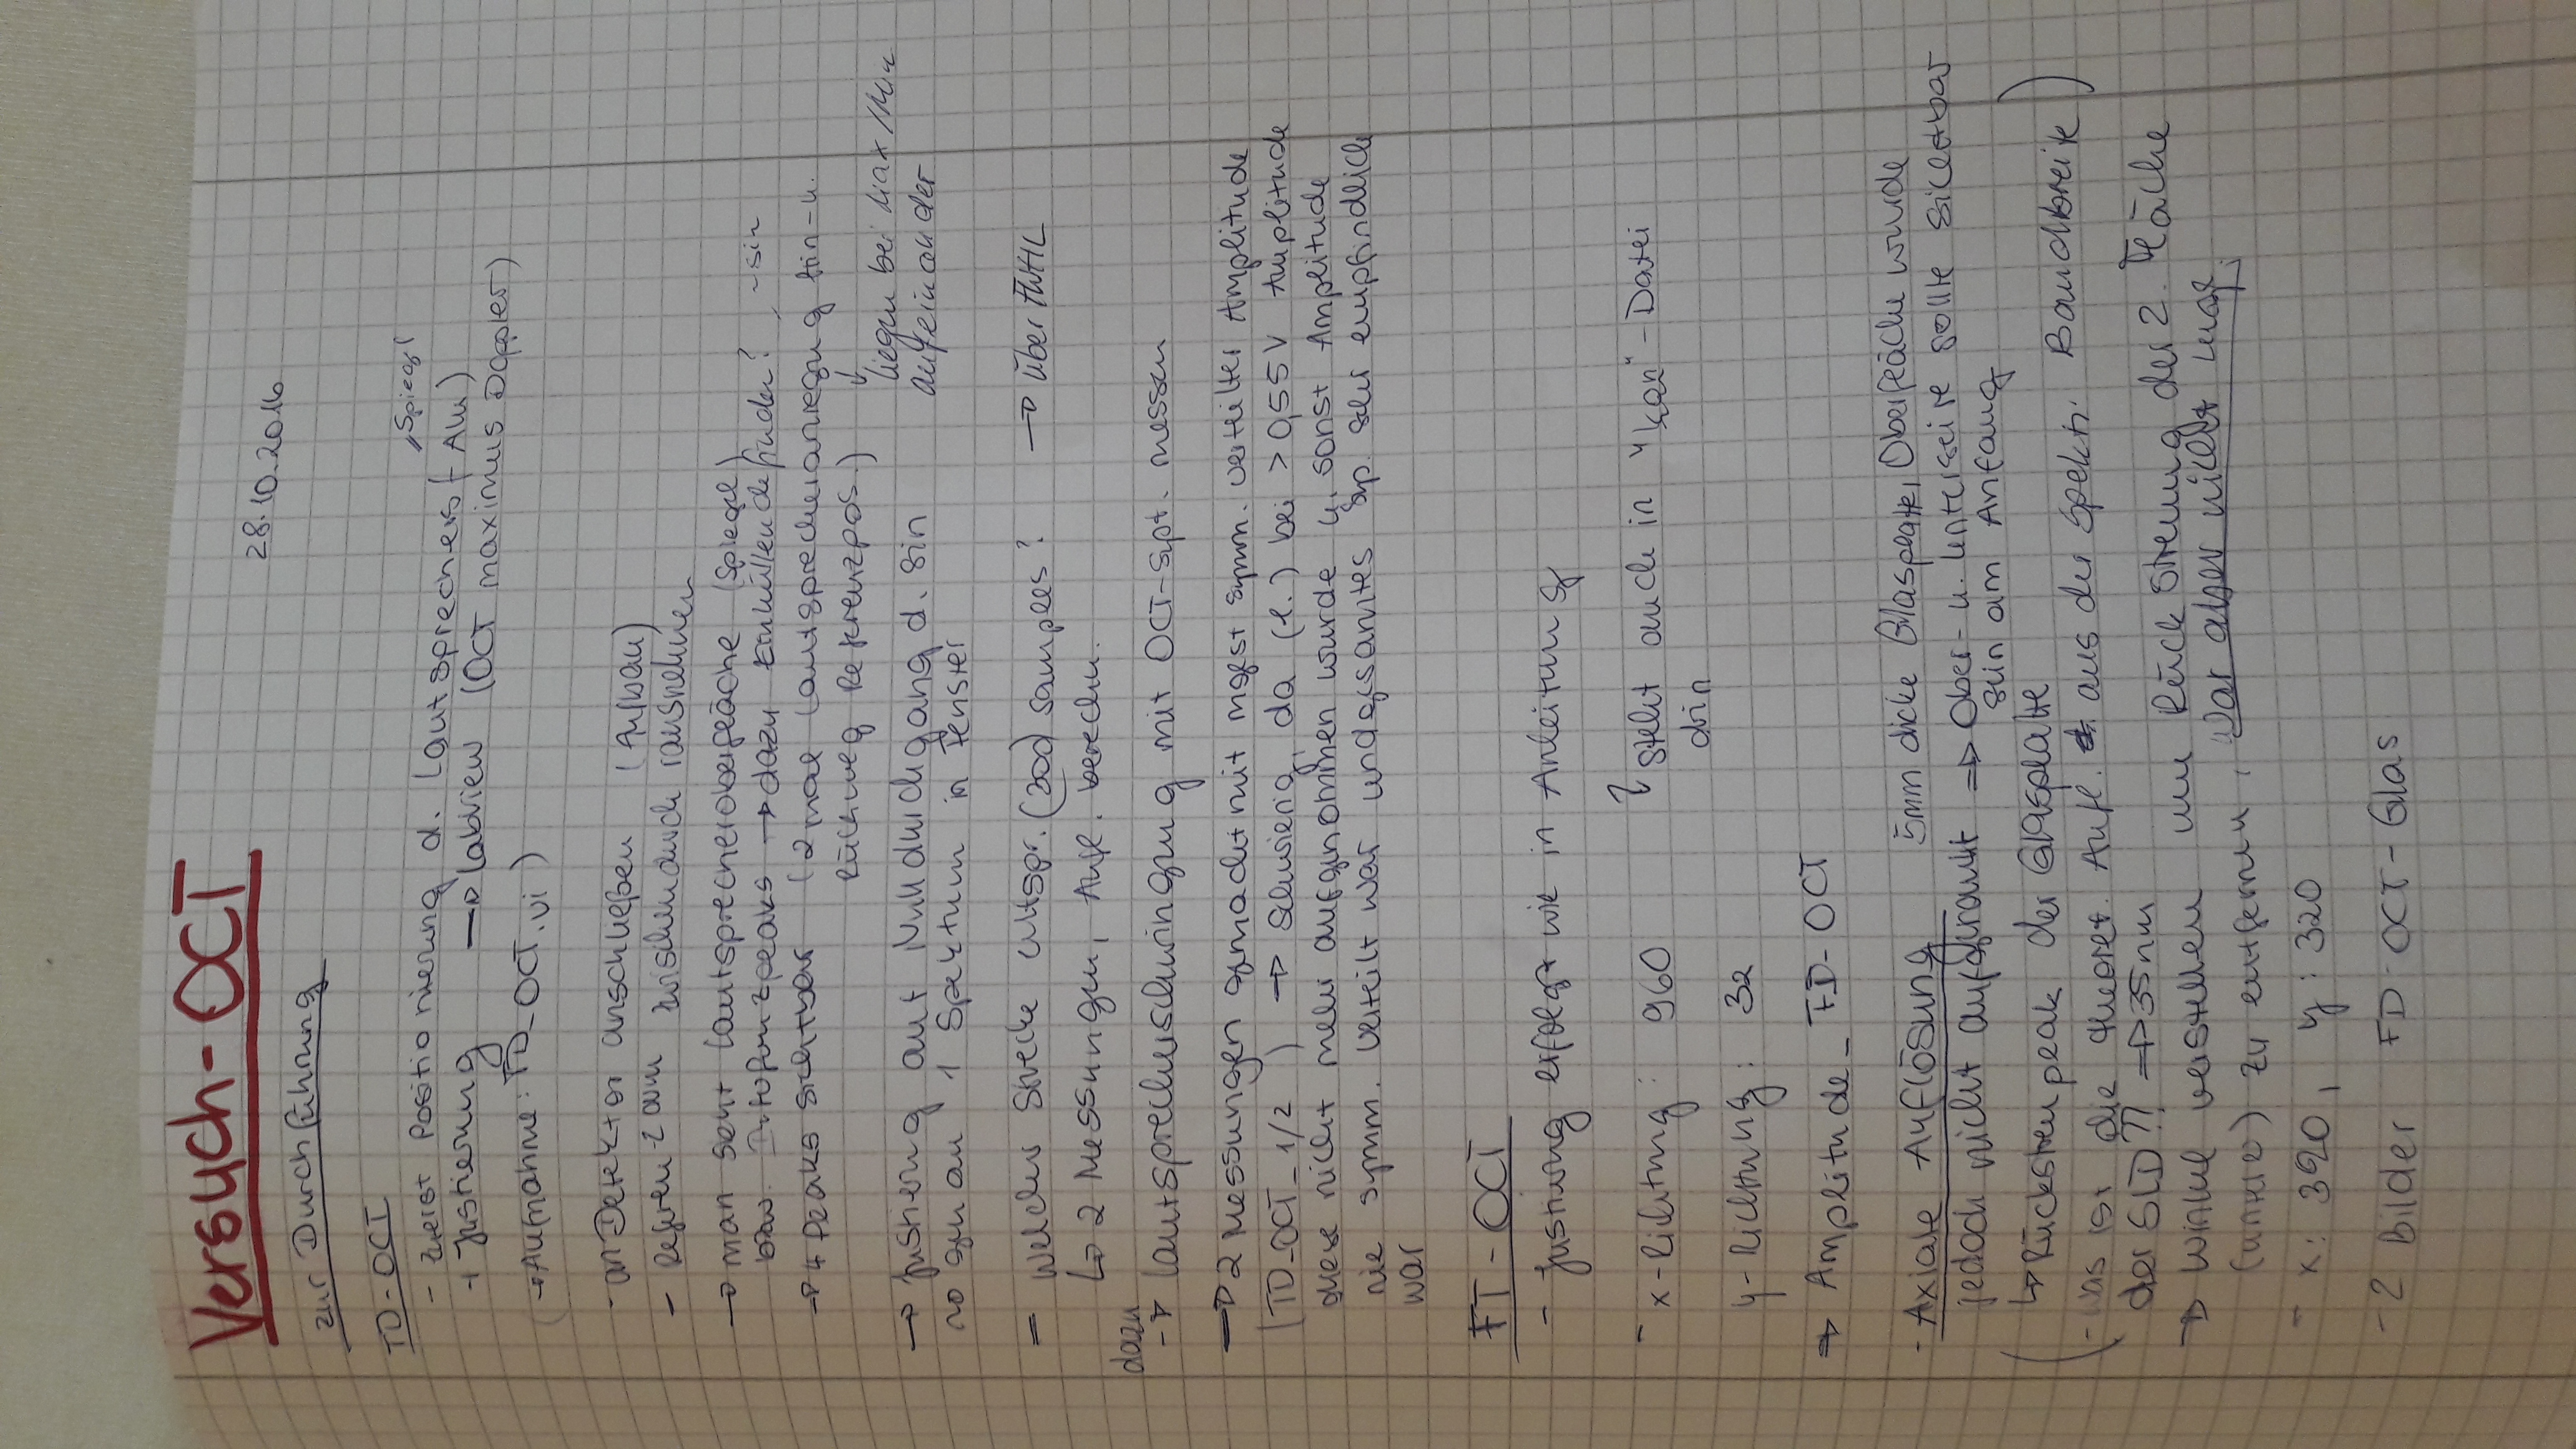 Versuch-OCT
28.10.2016
zur Durchführung
TD-OCT
"Spiegel
- zuerst Positionierung d. Lautsprechers (Alu)
+ Justierung → Labview (OCT maximus Doppler)
(→ Aufnahme: TD_OCT.vi )
- an Detektor anschließen (Aufbau)
- Referenzarm zwischendurch rausnehmen
→ man sieht Lautsprecheroberfläche (Spiegel)
bzw. zpeaks → dazu Einhüllende finden? ~sin
→ 4 Peaks sichtbar (2 mal Lautsprecheranregung Hin- u.
Rückweg Referenzpos.) ↓
liegen bei Max/Min
aufeinander
→ Justierung auf Nulldurchgang d. sin
genau 1 Spektrum in Fenster
= Welcher Strecke entspr. (300) Samples? → über
↳ 2 Messungen, Aufl. berechn.
dazu
→ Lautsprecherschwingung mit OCT-Spt. messen
→ 2 Messungen gemacht mit mgest symm. verteilter Amplitude
(TD_OCT_1/2 ) → schwierig, da (1.) bei > 0,55 V Amplitude
diese nicht mehr aufgenommen wurde u. sonst Amplitude
nie symm. verteilt war und gesamtes Sp. sehr empfindlich
war
FT-OCT
- Justierung erfolgt wie in Anleitung
- x-Richtung: 960
steht auch in "kan"-Datei
drin
y-Richtung: 32
⇒ Amplitude_FD-OCT
- Axiale Auflösung 5mm dicke Glasplatte, Oberfläche wurde
jedoch nicht aufgerauht ⇒ Ober- u. Unterseite sollte sichtbar
sein am Anfang
(↳ Rückstreupeak der Glasplatte
- was ist die theoret. Aufl. aus der Spektr. Bandbreite)
der SLD?? ⇒ 35nm
→ Winkel verstellen um Rückstreuung der 2. Fläche
(untere) zu entfernen, war aber nicht mögl.
- x: 320, y: 320
- 2 Bilder FD-OCT-Glas